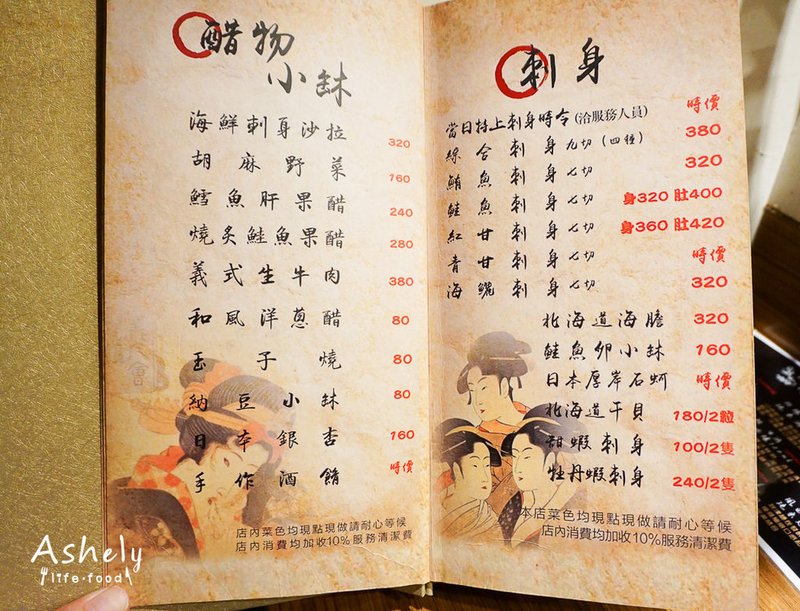 醋物
小缽
海鮮刺身沙拉 320
胡麻野菜 160
鱈魚肝果醋 240
燒炙鮭魚果醋 280
義式生牛肉 380
和風洋蔥醋 80
玉子燒 80
納豆小缽 80
日本銀杏 160
手作酒餚 時價
店內菜色均現點現做請耐心等候
店內消費均加收10%服務清潔費
刺身
當日特上刺身時令(洽服務人員) 時價
綜合刺身九切(四種) 380
鮪魚刺身七切 320
鮭魚刺身七切 身320 肚400
紅甘刺身七切 身360 肚420
青甘刺身七切 時價
海鱺刺身七切 320
北海道海膽 320
鮭魚卵小缽 160
日本厚岸石蚵 時價
北海道干貝 180/2粒
甜蝦刺身 100/2隻
牡丹蝦刺身 240/2隻
本店菜色均現點現做請耐心等候
店內消費均加收10%服務清潔費
Ashely
life·food